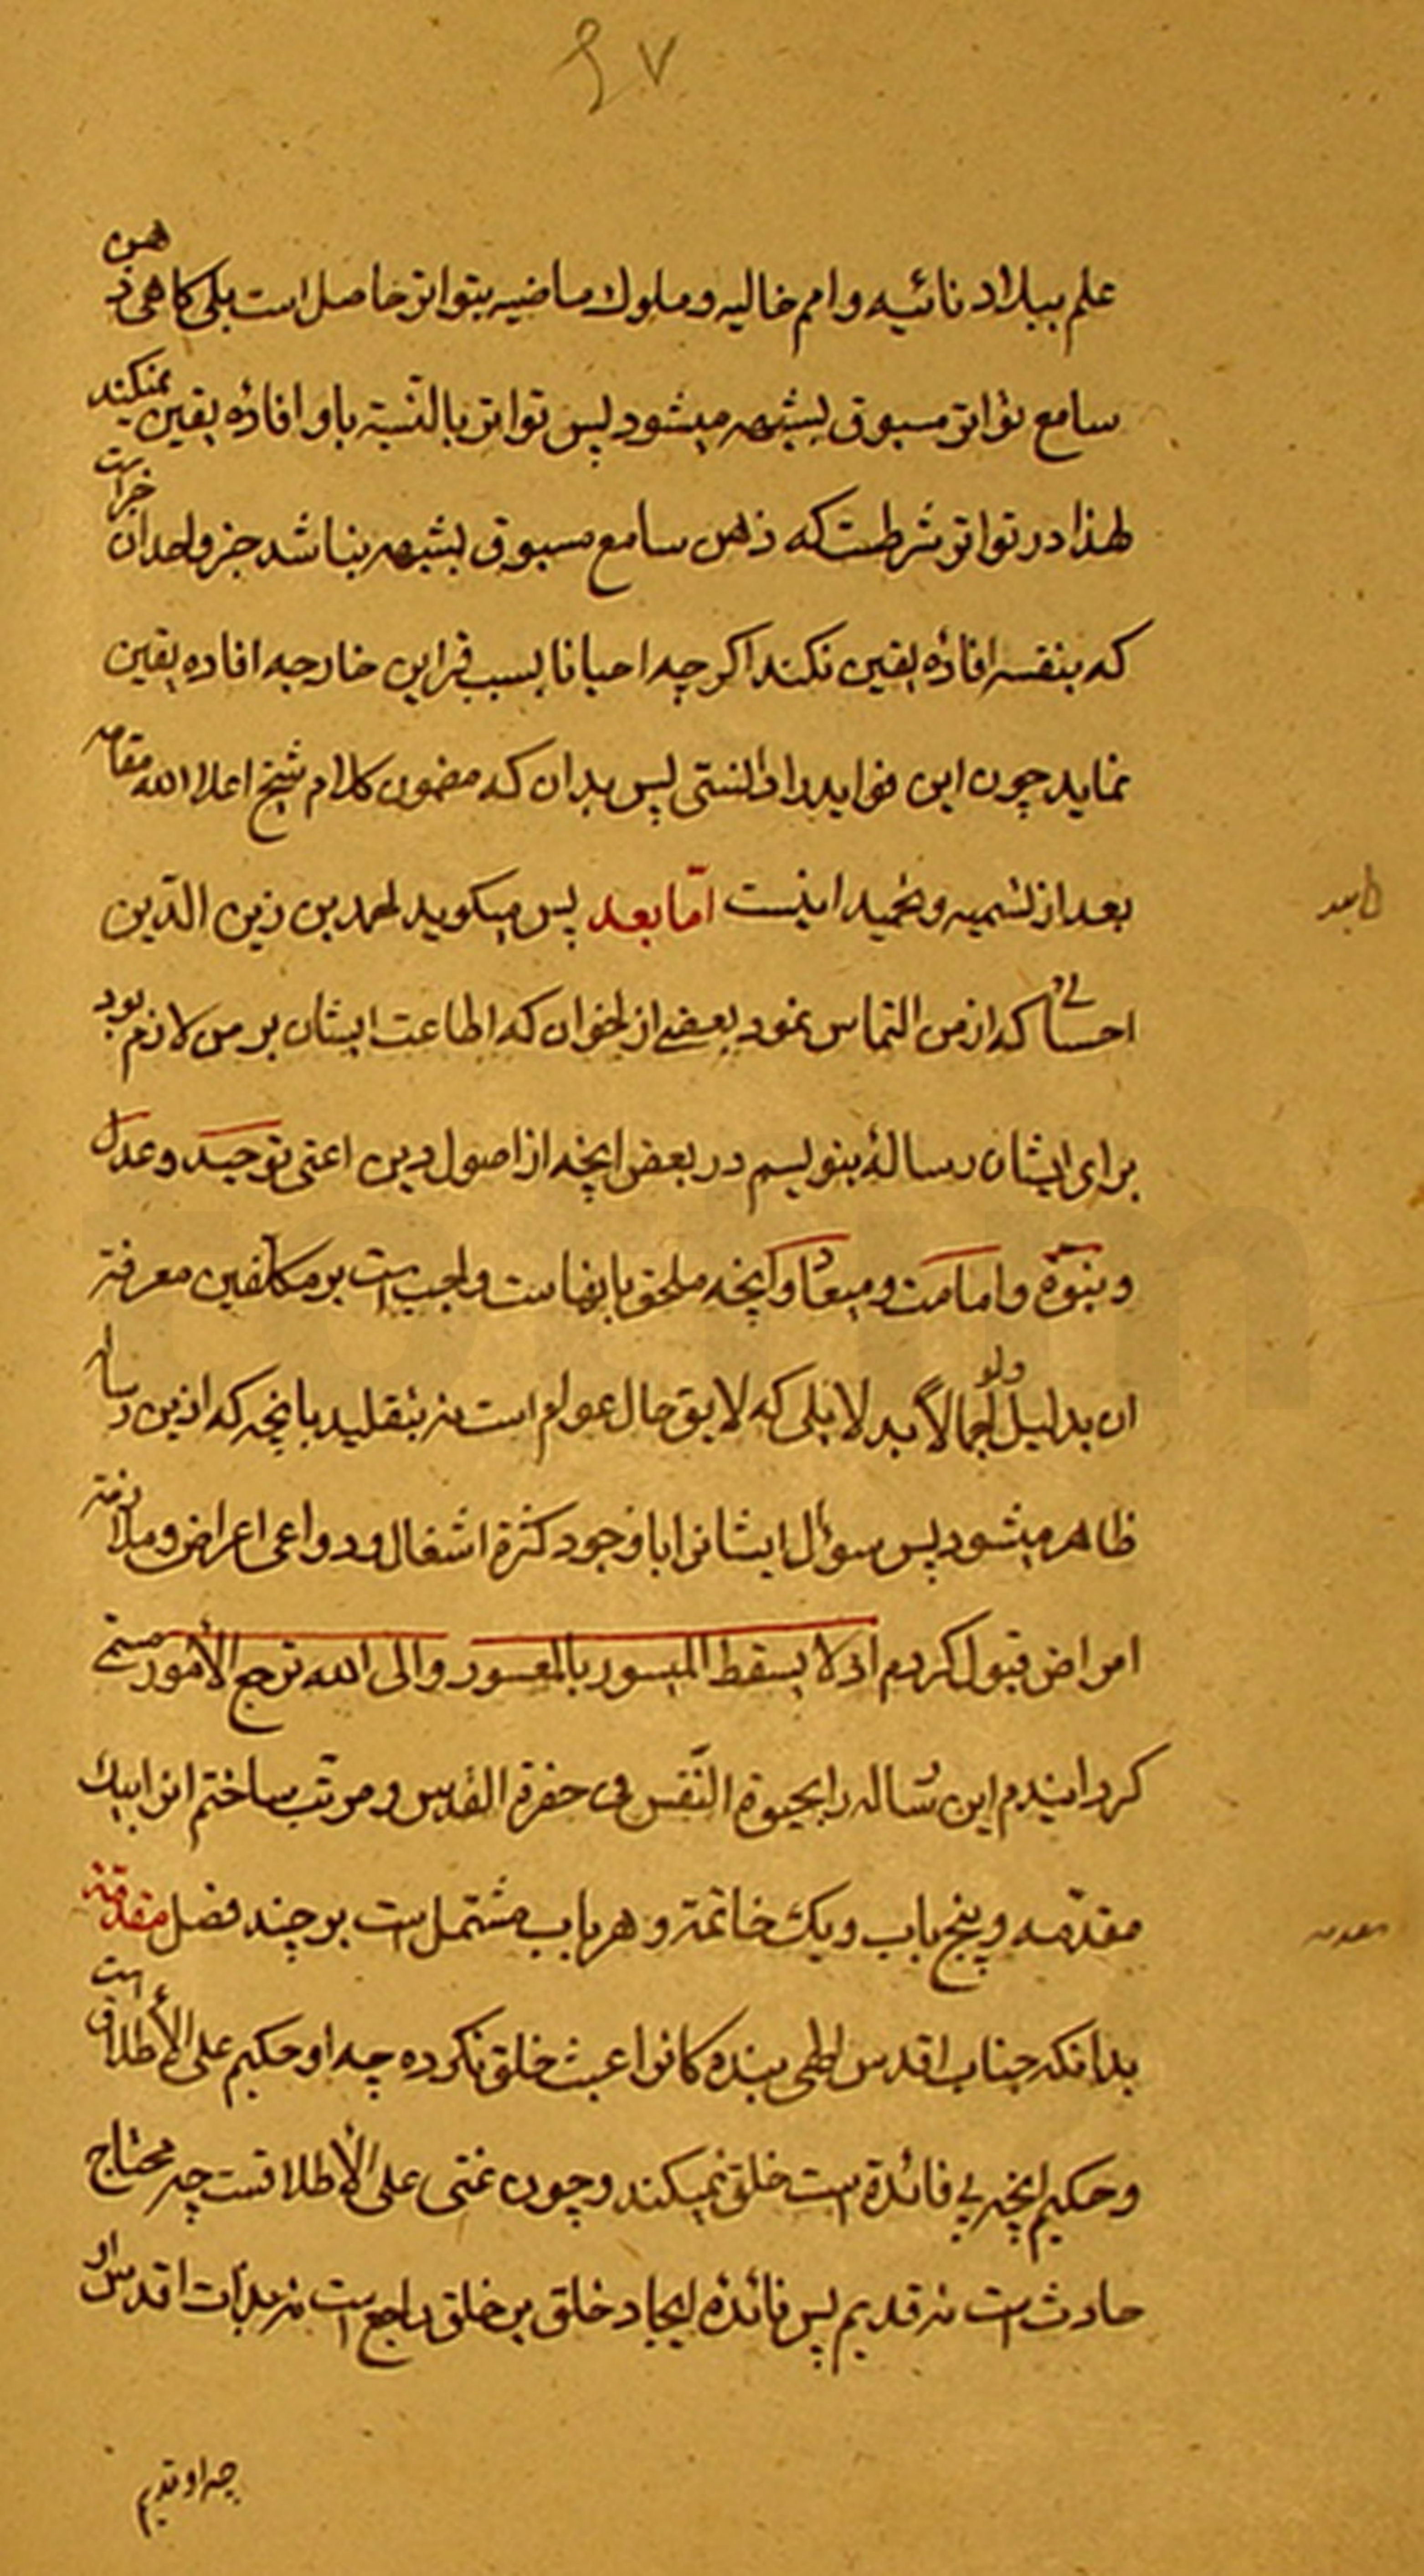 ۶۷
علم ببلاد نائیه و امم خالیه و ملوك ماضیه بتواتر حاصل است بلی کاهی ذهن
سامع تواتر مسبوق بشبهه میشود پس تواتر بالنّسبة باو افادهٔ یقین نمیکند
لهذا در تواتر شرطست که ذهن سامع مسبوق بشبهه نباشد خبر واحد آن خبر است
که بنفسه افادهٔ یقین نکند اکرچه احیانا بسبب قراین خارجه افاده یقین
نماید چون این فواید را دانستی پس بدان که مضمون کلام شیخ اعلا الله مقامه
بعد از تسمیه و تحمید اینست امّا بعد پس میکوید احمد بن زین الدّین
احسائی که از من التماس نمود بعضی از اخوان که اطاعت ایشان بر من لازم بود
برای ایشان رسالهٔ بنویسم در بعض آنچه از اصول دین اعنی توحید و عدل
و نبوّة و امامت و میعاد و آنچه ملحق بانها ست واجب است بر مکلّفین معرفة
ان بدلیل ولو اجمالاً بدلایلی که لایق حال عوام است نه بتقلید بانچه که ازین رساله
ظاهر میشود پس سوٴال ایشانرا با وجود کثرة اشغال و دواعی اعراض و ملازمة
امراض قبول کردم اذ لا یسقط المیسور بالمعسور و الی الله ترجع الأمور مسمّی
کردانیدم این رساله را بحیوة النّفس فی حضرة القدس و مرتّب ساختم انرا بیك
مقدّمه و پنج باب و یك خاتمة و هر باب مشتمل است بر چند فصل مقدّمة
بدانکه جناب اقدس الهی بنده کانرا عبث خلق نکرده چه او حکیم علی الأطلاق است
و حکیم آنچه بی فائدة است خلق نمیکند و چون غنی علی الأطلاقست چه محتاج
حادث است نه قدیم پس فائدهٔ ایجاد خلق بر خلق راجع است نه بذات اقدس او
چه او قدیم
امّا بعد
مقدمه